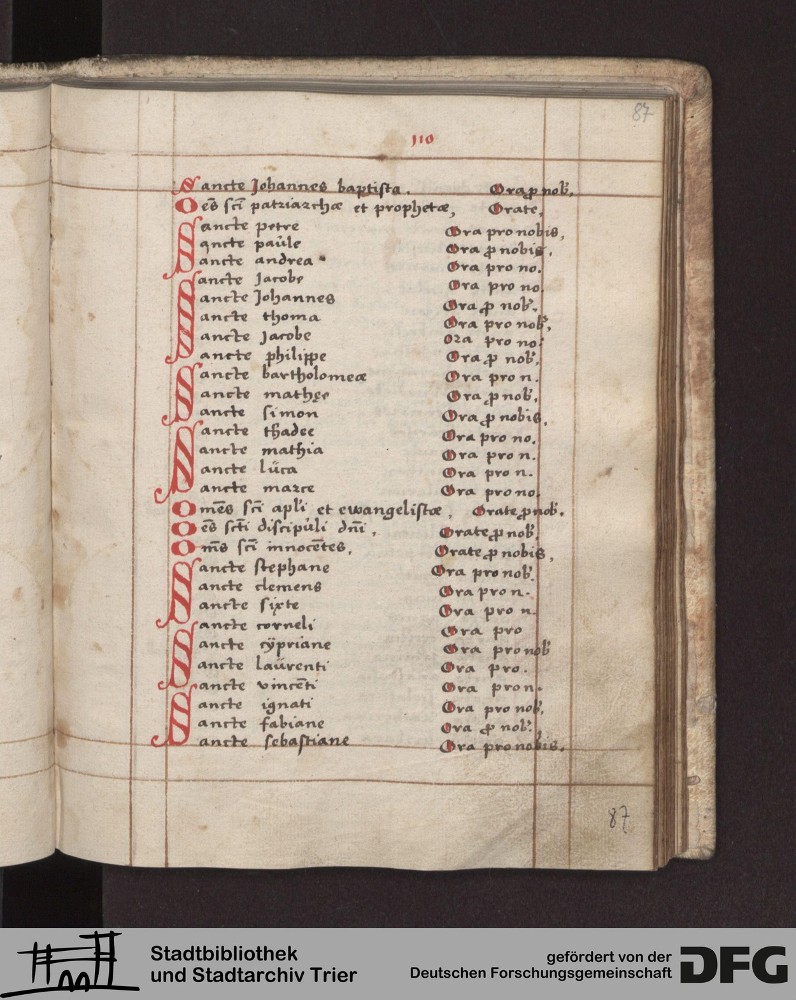 87
110
Sancte Johannes baptista. Ora p nob,
Oēs scī patriarchæ et prophetæ, Orate,
Sancte petre Ora pro nobis,
Sancte paule Ora p nobis,
Sancte andrea Ora pro no.
Sancte Jacobe Ora pro no.
Sancte Johannes Ora p nob.
Sancte thoma Ora pro nob,
Sancte Jacobe Ora pro no.
Sancte philippe Ora p nob,
Sancte bartholomeæ Ora pro n.
Sancte mathee Ora p nob,
Sancte simon Ora p nobis,
Sancte thadee Ora pro no.
Sancte mathia Ora pro n.
Sancte lüca Ora pro n.
Sancte marce Ora pro no.
Omēs scī apli et ewangelistæ, Orate p nob.
Oēs sctī discipüli dnī, Orate p nob,
Omēs scī innocētes, Orate p nobis,
Sancte stephane Ora pro nob,
Sancte clemens Ora pro n.
Sancte sixte Ora pro n.
Sancte corneli Ora pro
Sancte cÿpriane Ora pro nob
Sancte laürenti Ora pro.
Sancte vincēti Ora pro n.
Sancte ignati Ora pro nob,
Sancte fabiane Ora p nob,
Sancte sebastiane Ora pro nobis,
87
Stadtbibliothek
und Stadtarchiv Trier
gefördert von der
Deutschen Forschungsgemeinschaft
DFG